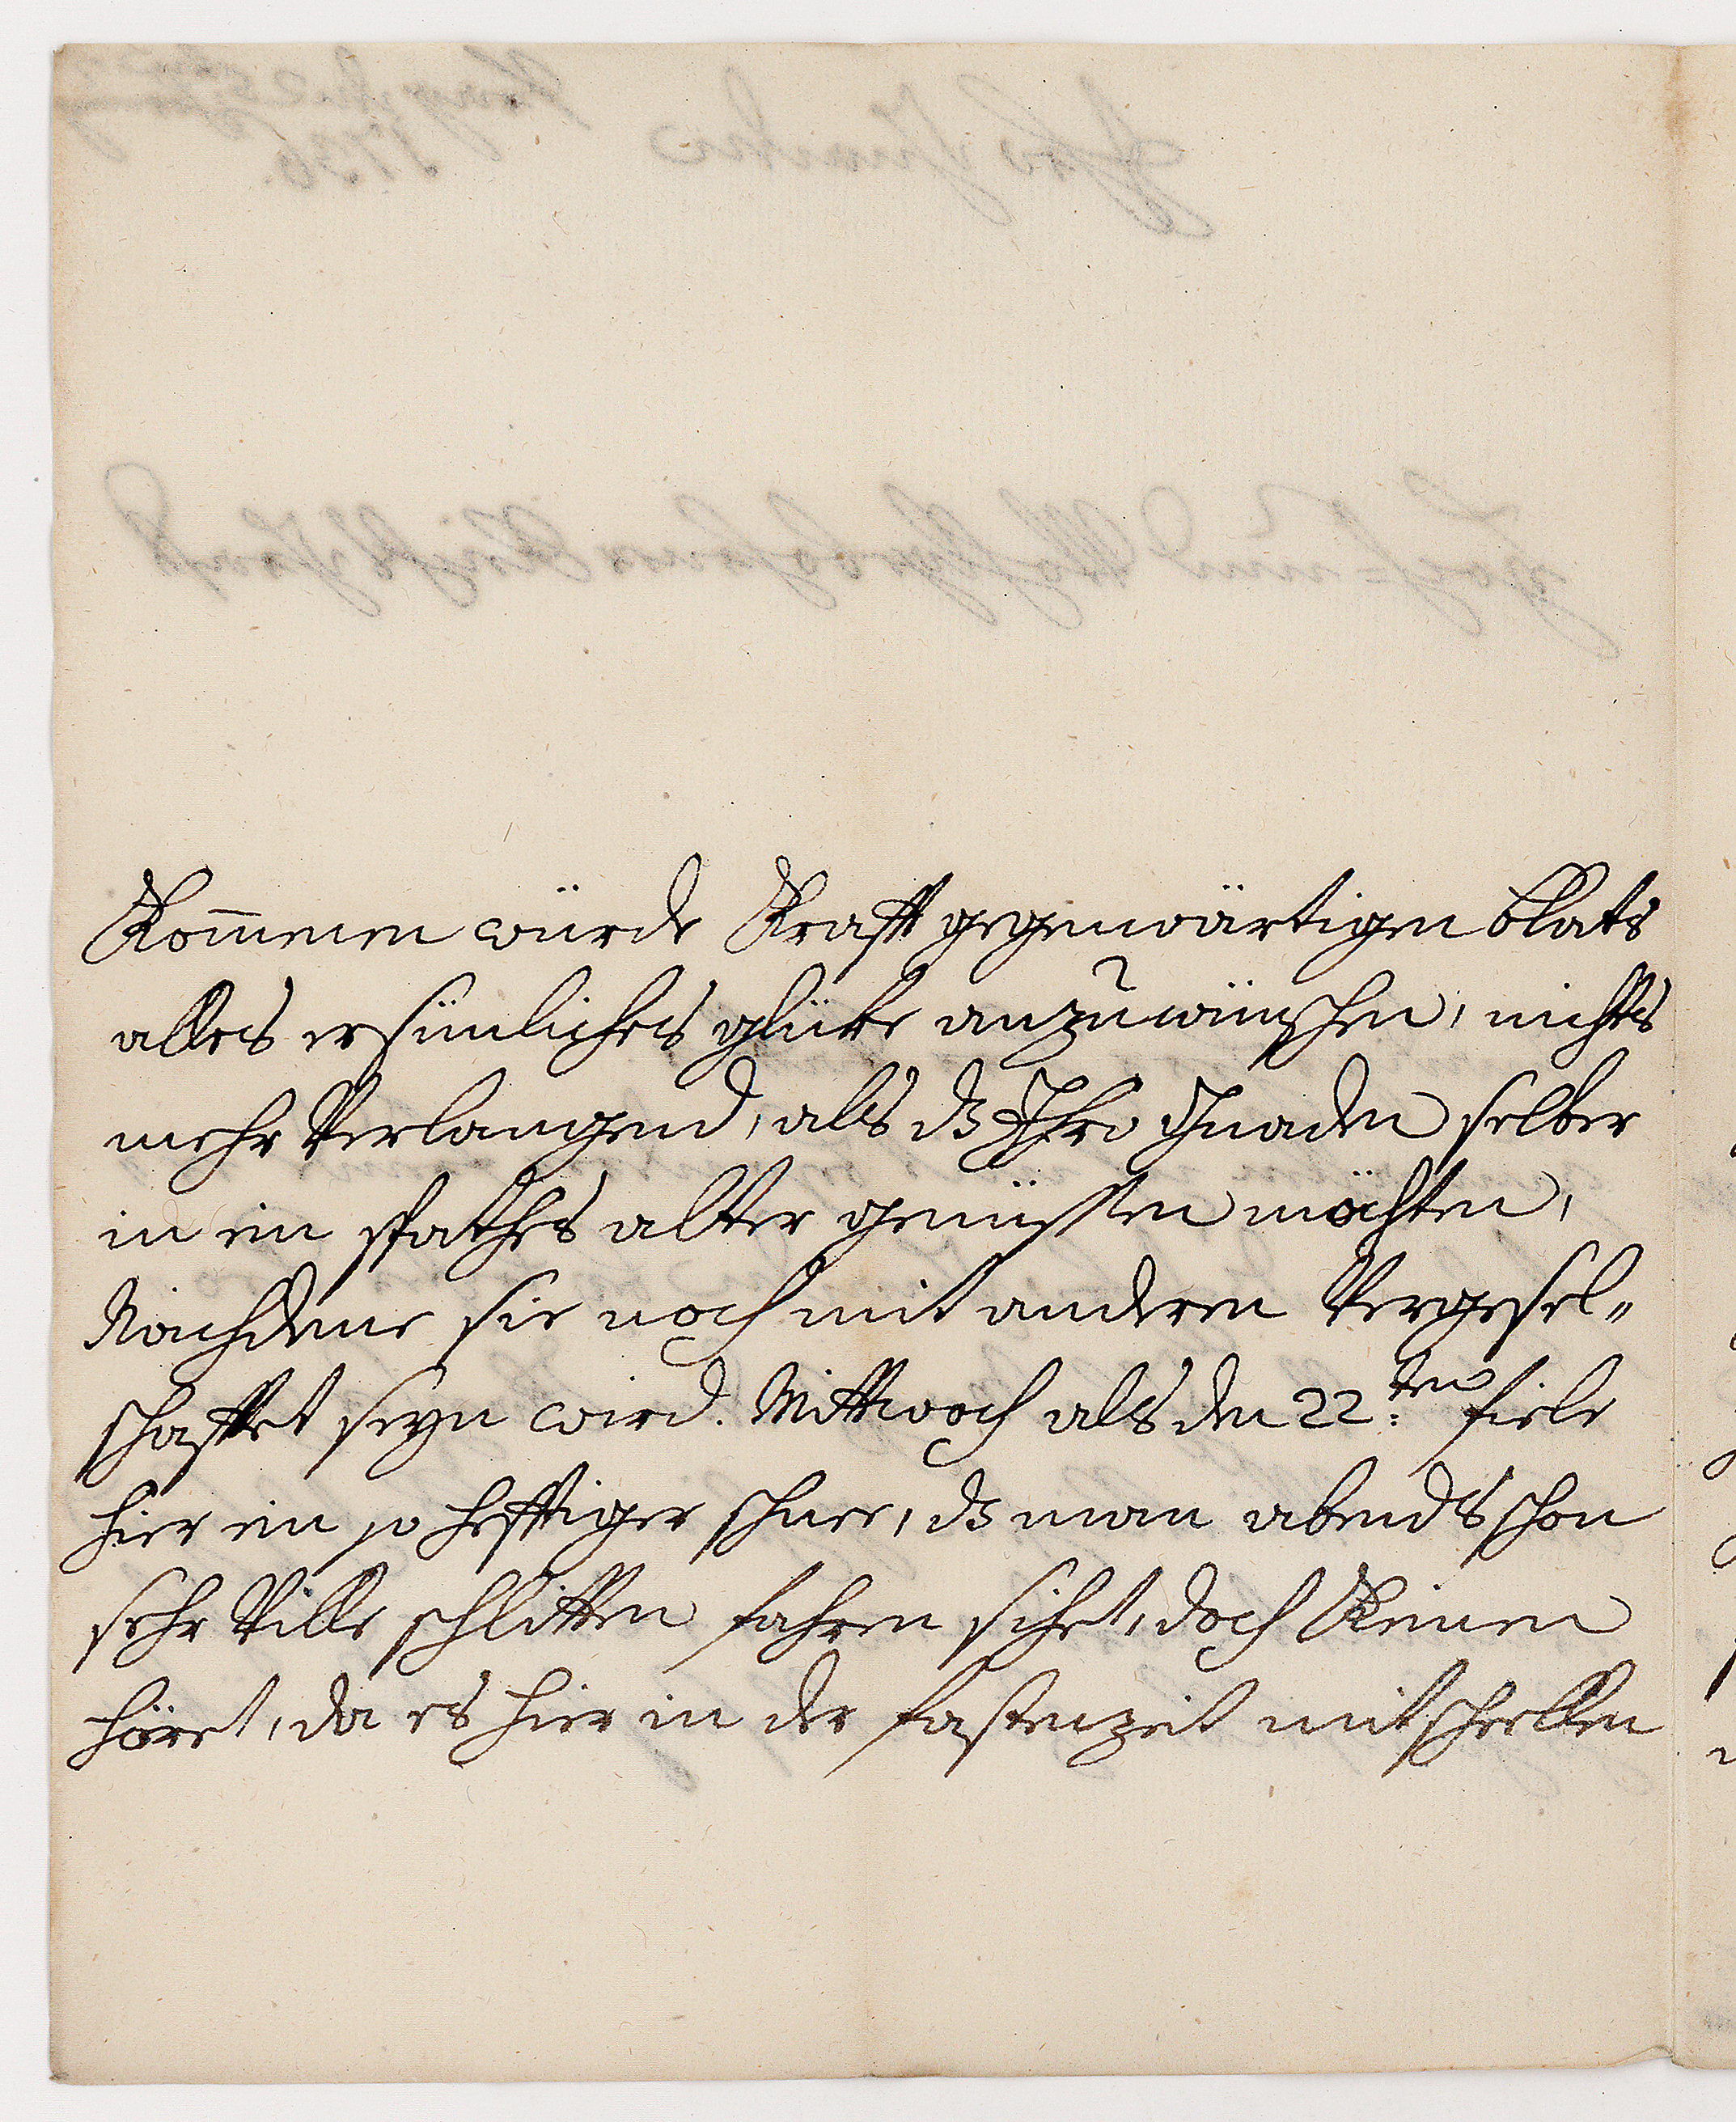 Kom̅enen würde Krafft gegenwärtigen blats
alles ersünliches glüke anzuwünschen, nichts
mehr Verlangend, als dz Ihro Gnaden selber
in ein spathes alter genüssen möchten,
Nachdeme sie noch mit anderen Vergesel„
schafftet seyn wird. Mittwoch als den 22:ten fiele
hier ein so hefftiger schnee, dz man abends schon
sehr Ville schlitten fahren sihet, doch Keinen
höret, da es hier in der fastenzeit mit schellen